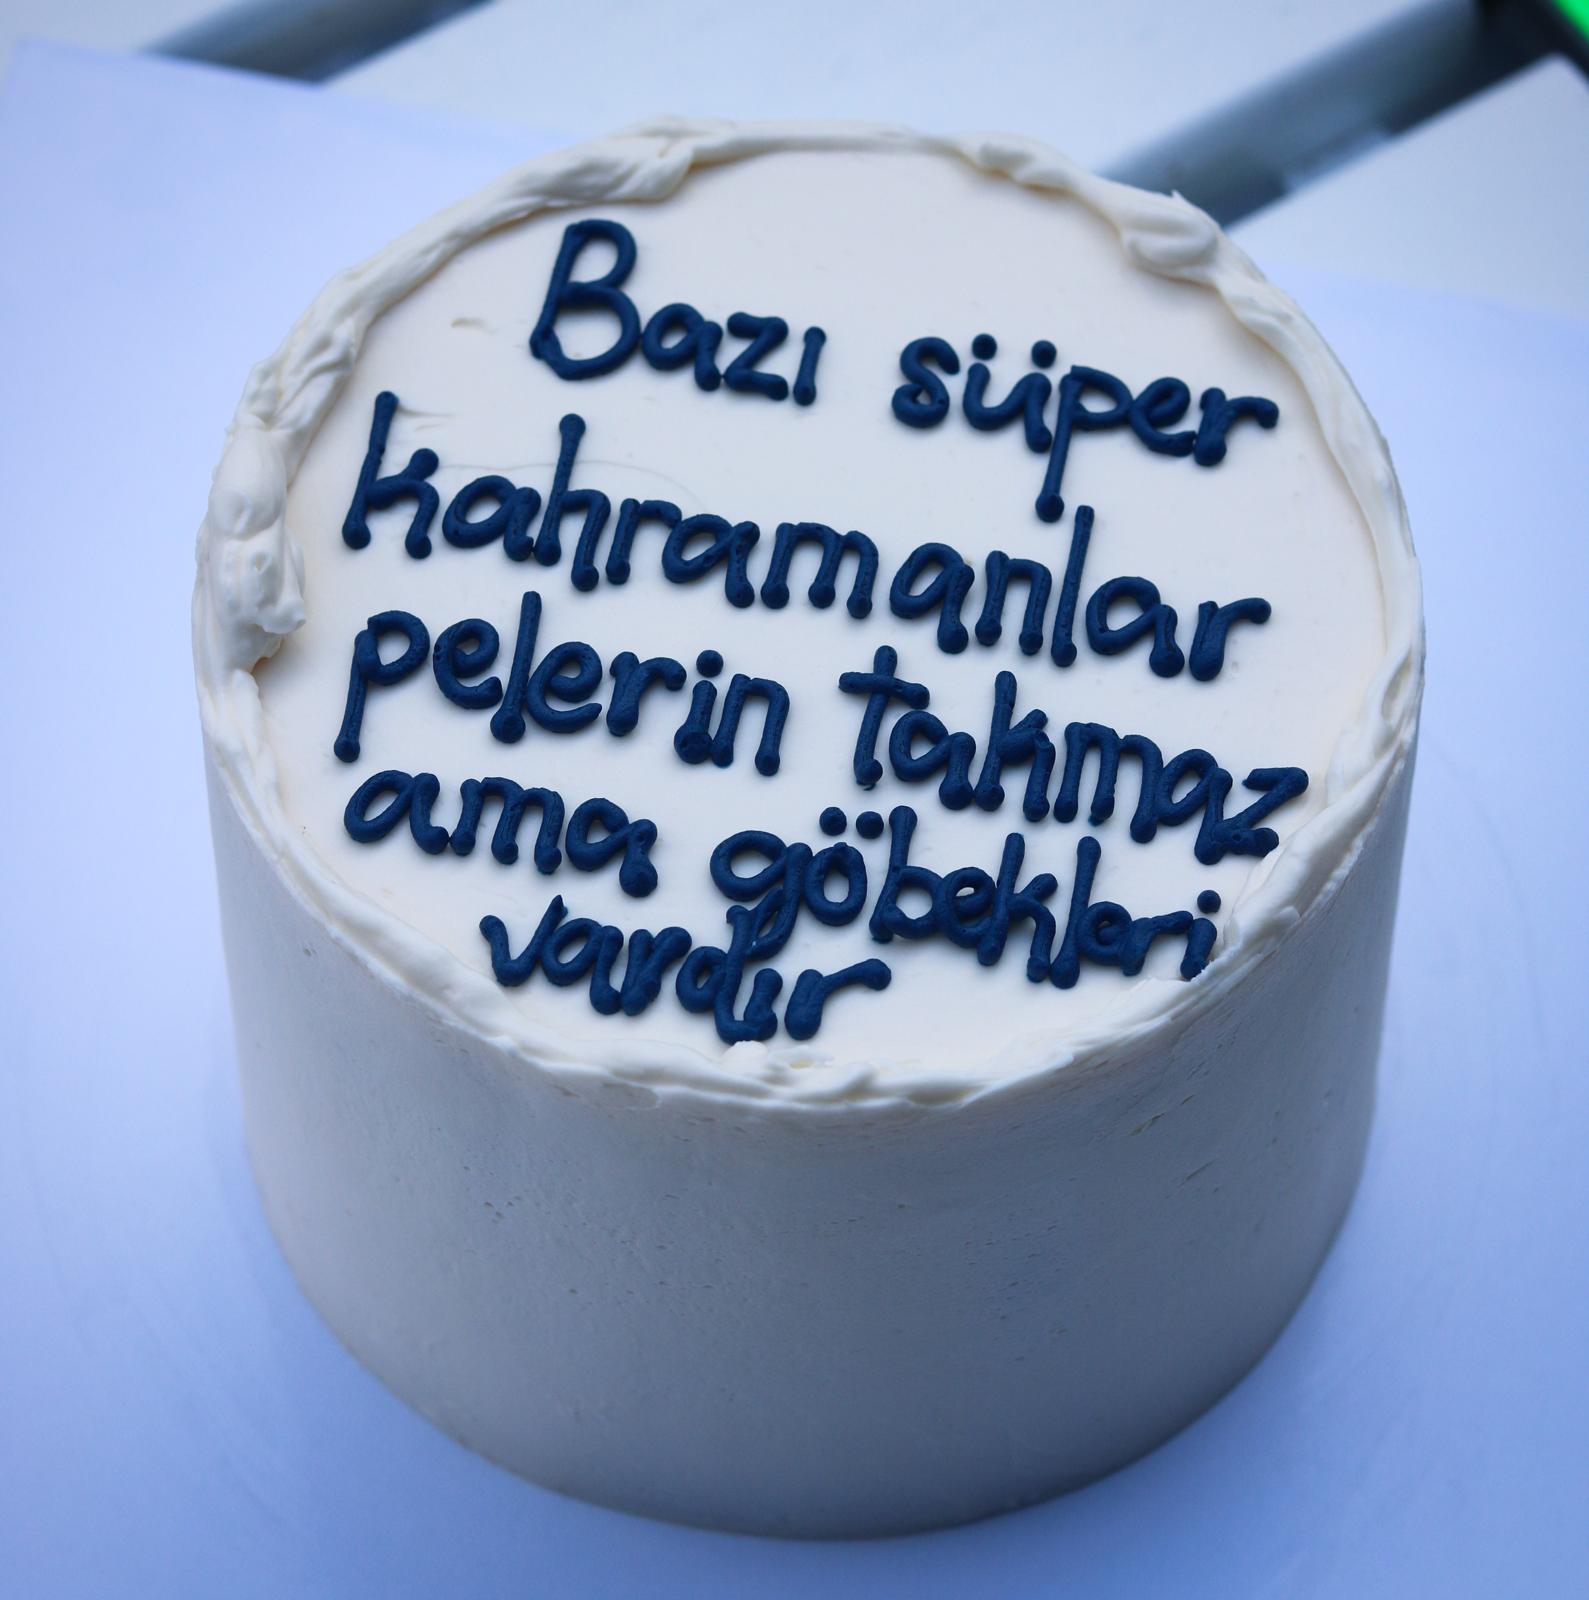 Bazı süper
kahramanlar
pelerin takmaz
ama göbekleri
vardır